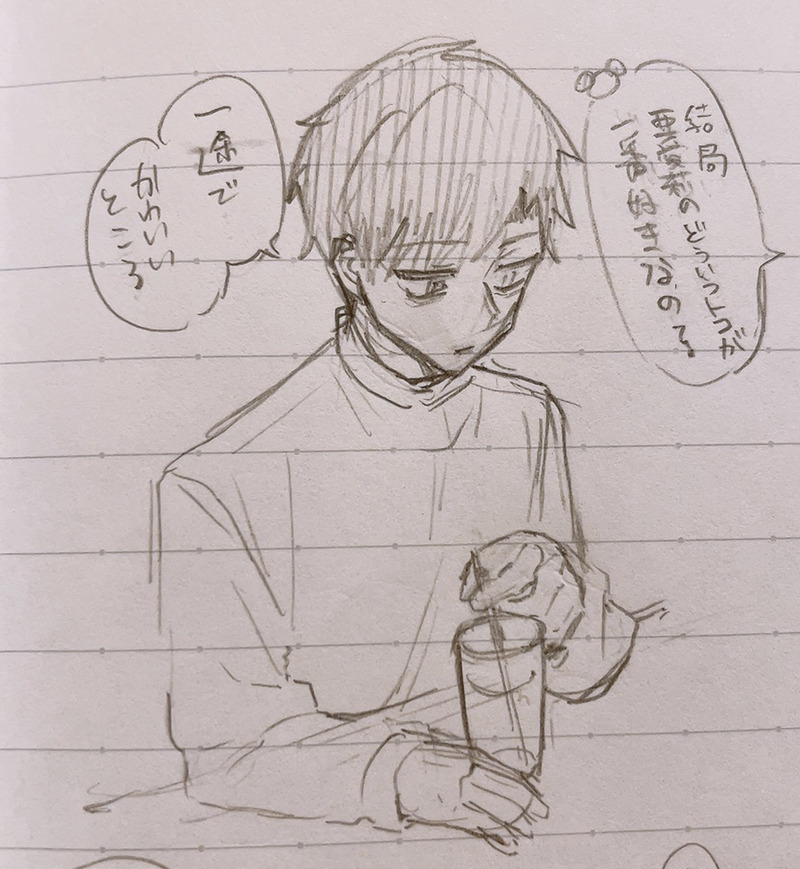 結局
のどういうトコが
一番好きなの?
一途で
かわいい
ところ